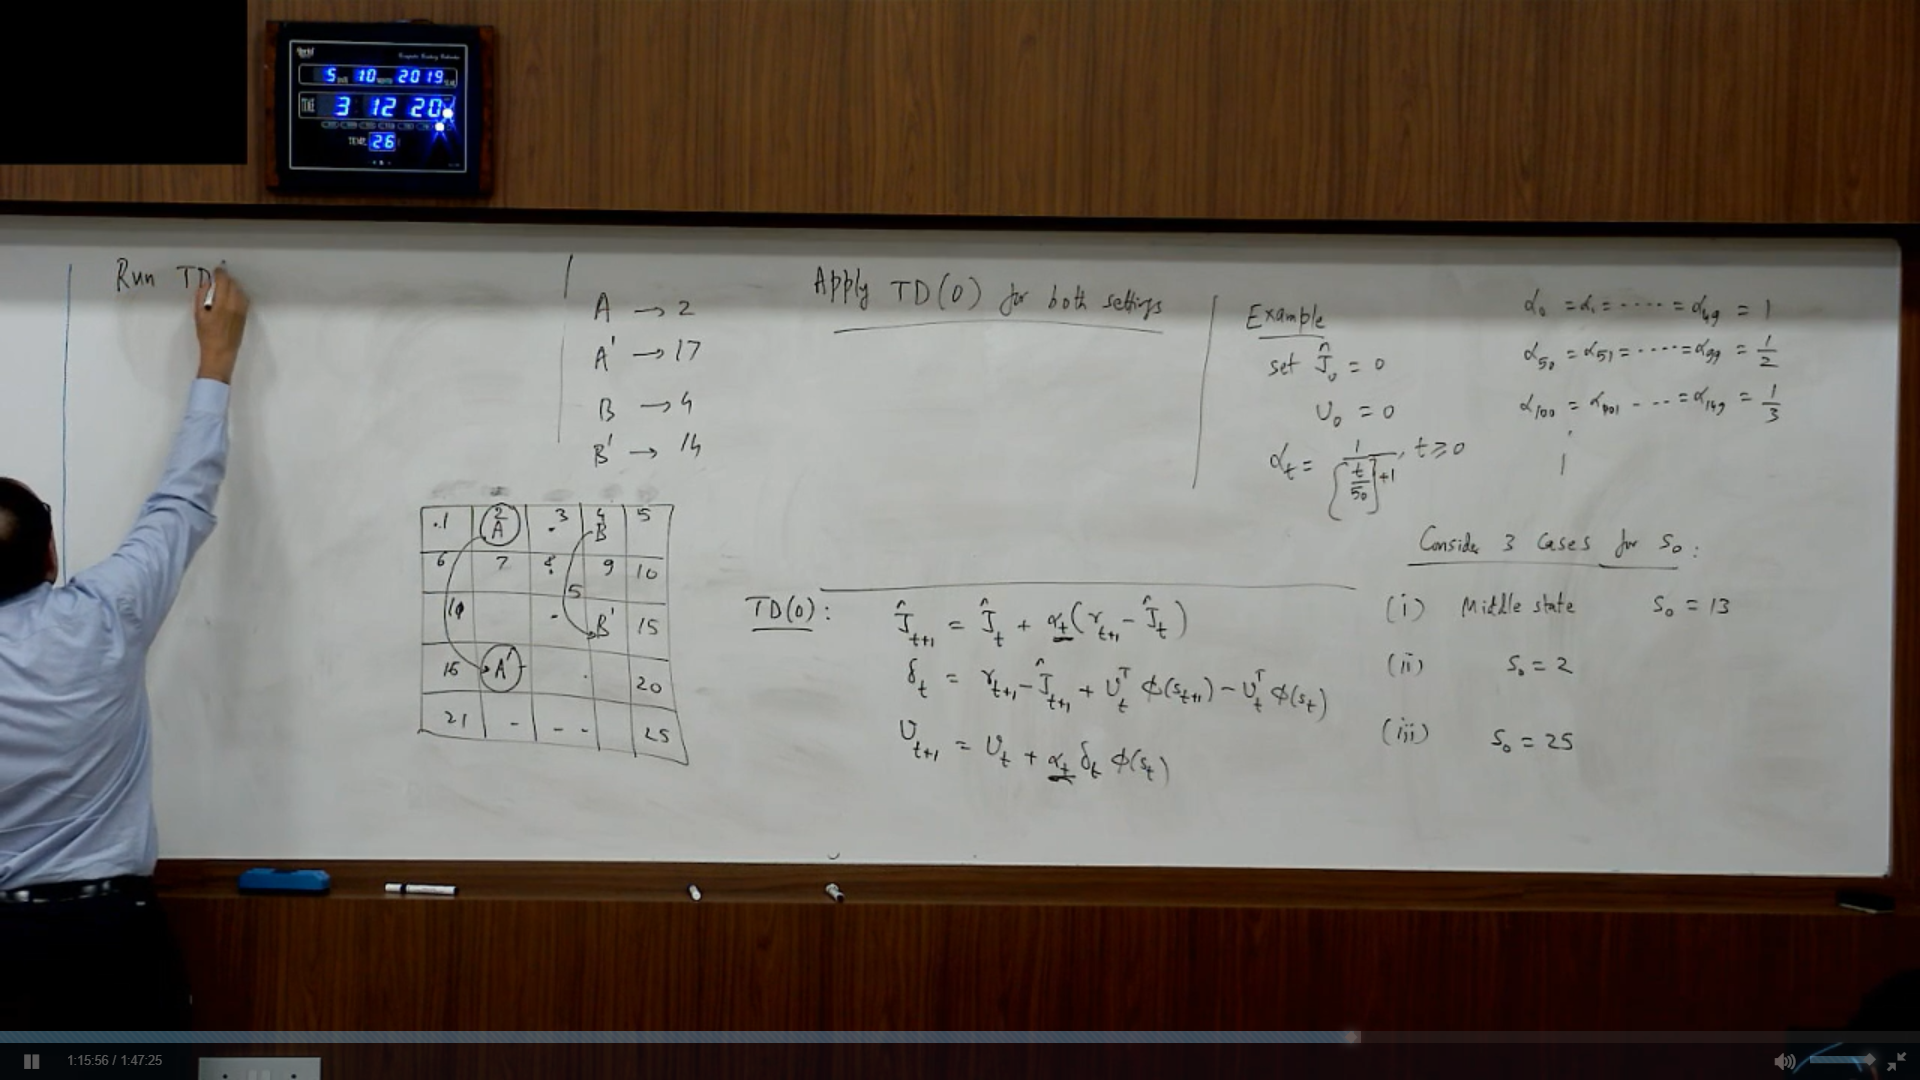 5 10 2019
TIME 3 12 20
TEMP. 26
Run TD
A → 2
A' → 17
B → 4
B' → 14
.1 2 A .3 4 B 5
6 7 8 9 10
10 5 B' 15
16 A' 20
21 - - - - 25
Apply TD(0) for both settings
TD(0) :
Ĵ_{t+1} = Ĵ_t + α_t (r_{t+1} - Ĵ_t)
δ_t = r_{t+1} - Ĵ_{t+1} + υ_t^T φ(s_{t+1}) - υ_t^T φ(s_t)
υ_{t+1} = υ_t + α_t δ_t φ(s_t)
Example
set Ĵ_0 = 0
υ_0 = 0
α_t = 1/([t/50]+1), t ≥ 0
α_0 = α_1 = ..... = α_49 = 1
α_50 = α_51 = ..... = α_99 = 1/2
α_100 = α_101 - .. = α_149 = 1/3
Consider 3 cases for s_0 :
(i) Middle state s_0 = 13
(ii) s_0 = 2
(iii) s_0 = 25
1:15:56 / 1:47:25